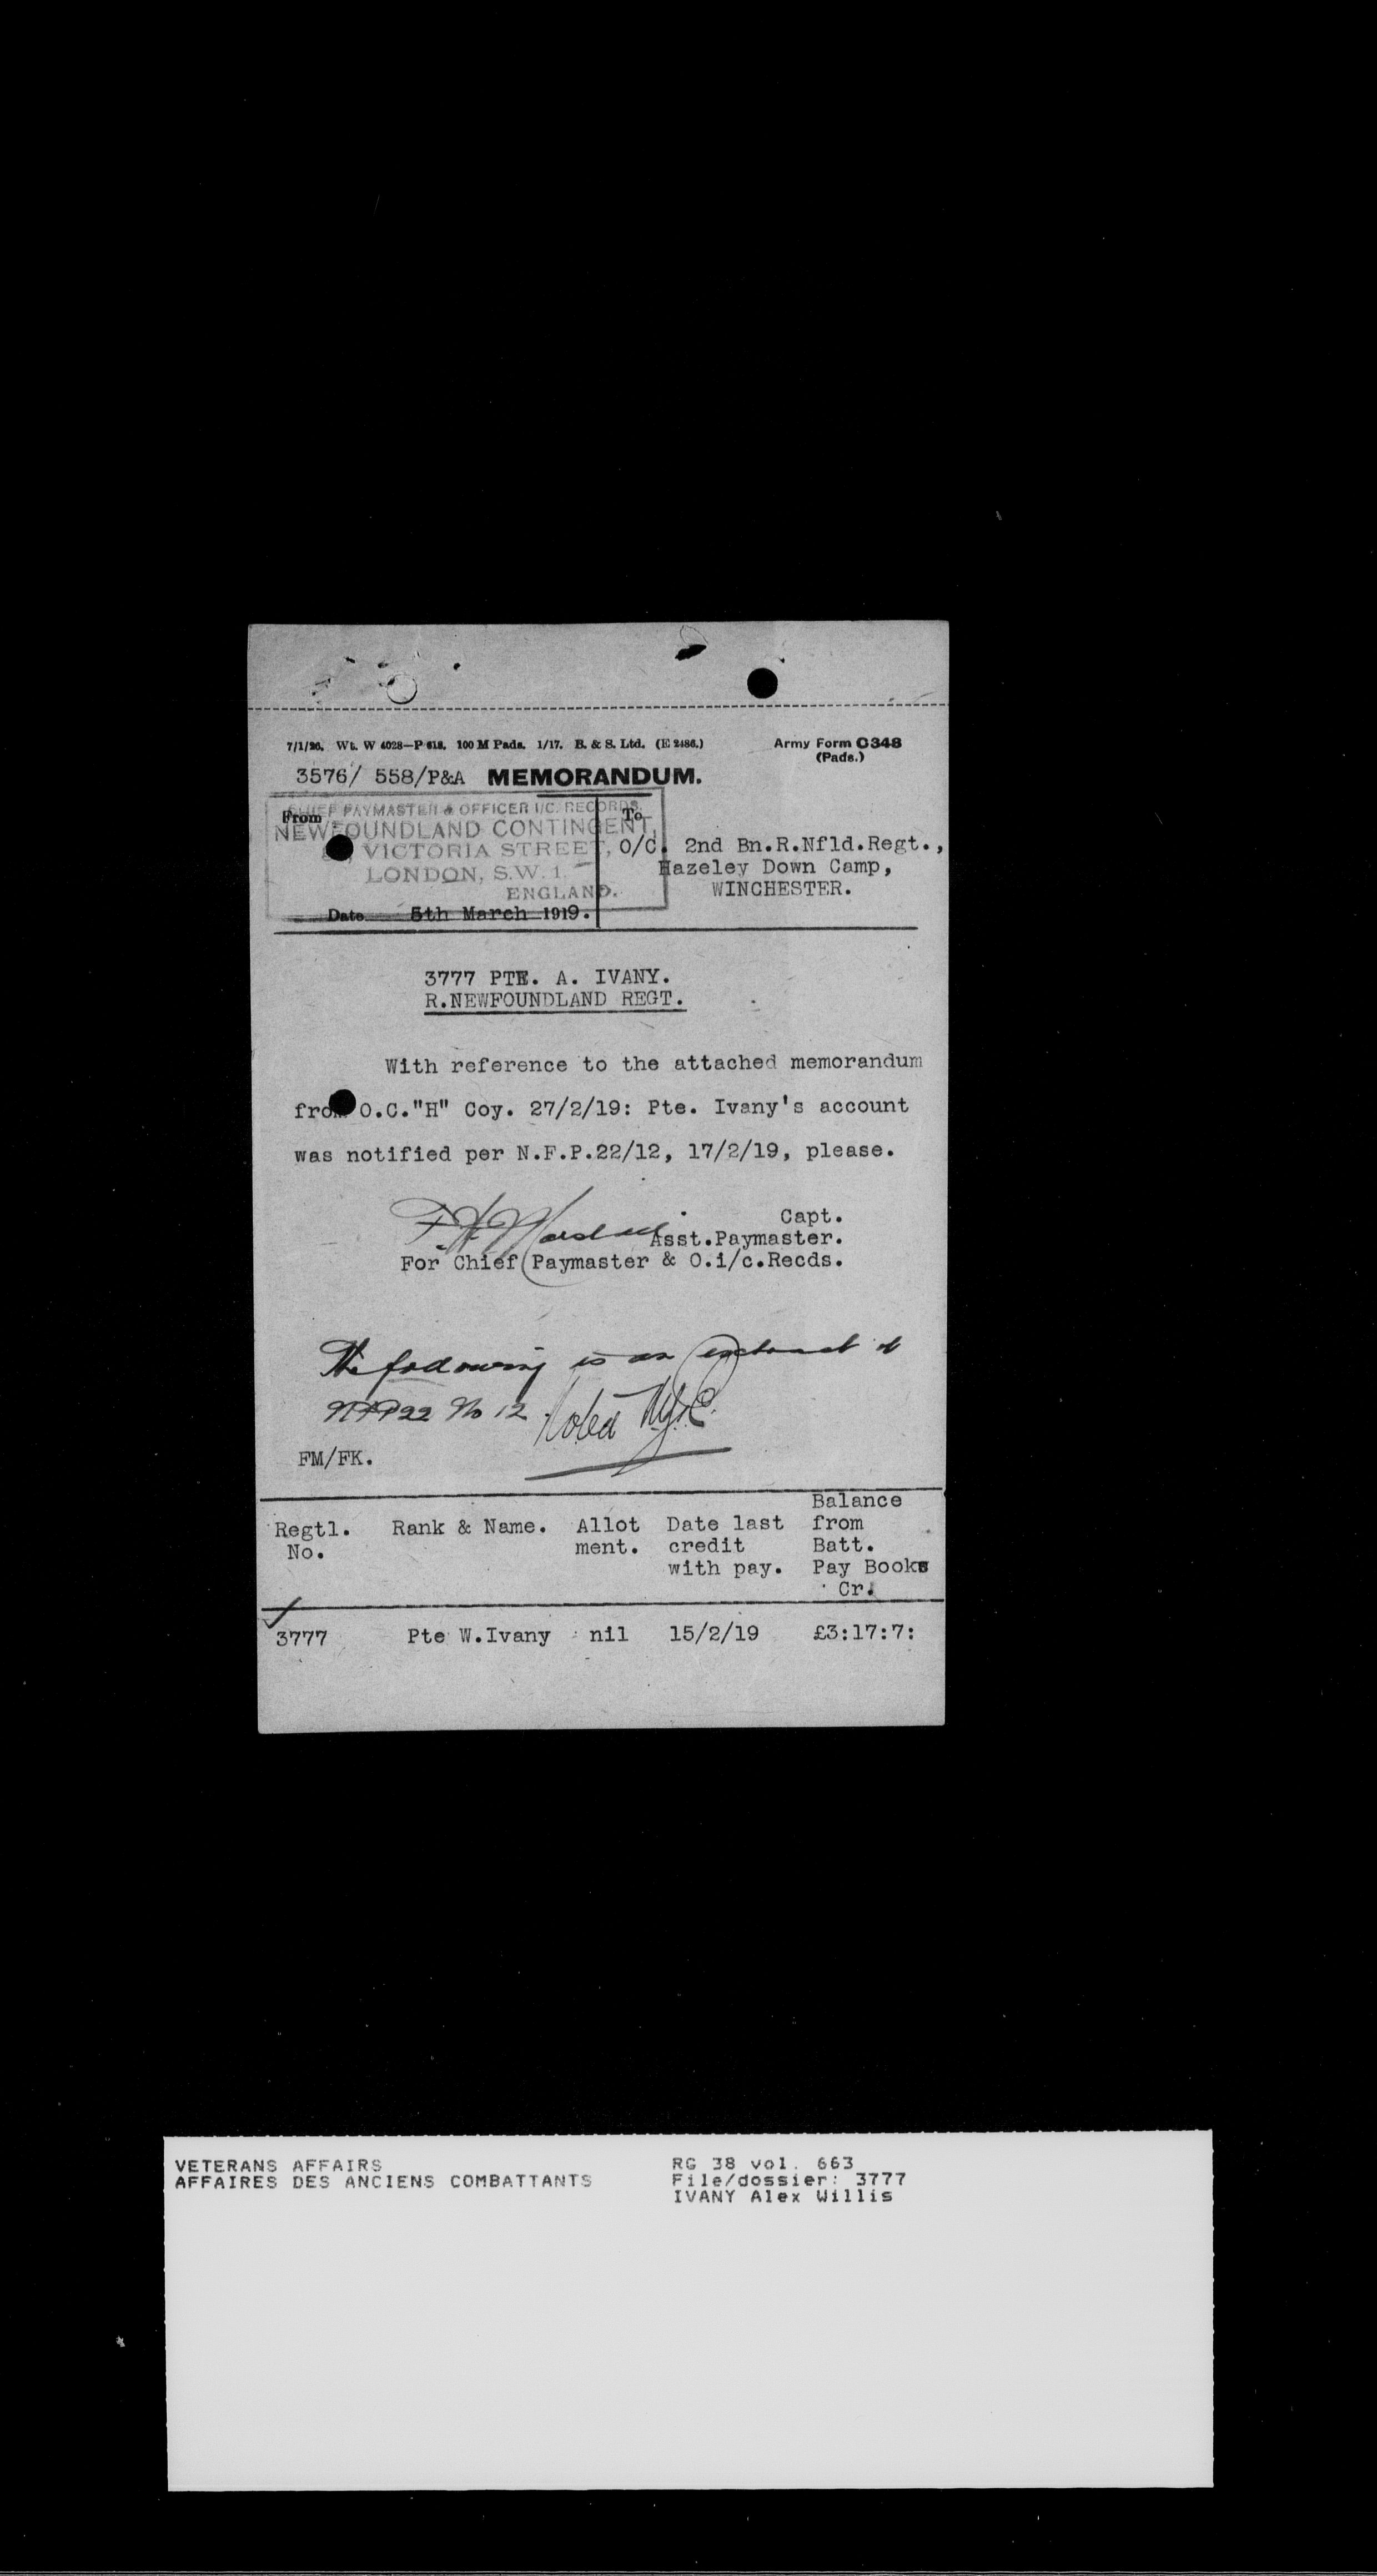 7/1/26. Wt. W 4028—P 618. 100 M Pads. 1/17. B. & S. Ltd. (E 2486.)
Army Form C348
(Pads.)
3576/ 558/P&A MEMORANDUM.
CHIEF PAYMASTER & OFFICER I/C. RECORDS,
From
NEWFOUNDLAND CONTINGENT,
VICTORIA STREET,
LONDON, S.W. 1
ENGLAND.
Date 5th March 1919.
To
O/C. 2nd Bn.R.Nfld.Regt.,
Hazeley Down Camp,
WINCHESTER.
3777 PTE. A. IVANY.
R.NEWFOUNDLAND REGT.
With reference to the attached memorandum
from O.C."H" Coy. 27/2/19: Pte. Ivany's account
was notified per N.F.P.22/12, 17/2/19, please.
Capt.
Asst.Paymaster.
For Chief Paymaster & O.i/c.Recds.
The following is an extract of
NFP22 No 12.
FM/FK.
Regtl. No. Rank & Name. Allot ment. Date last credit with pay. Balance from Batt. Pay Books Cr.
3777 Pte W.Ivany nil 15/2/19 £3:17:7:
VETERANS AFFAIRS
AFFAIRES DES ANCIENS COMBATTANTS
RG 38 vol. 663
File/dossier: 3777
IVANY Alex Willis